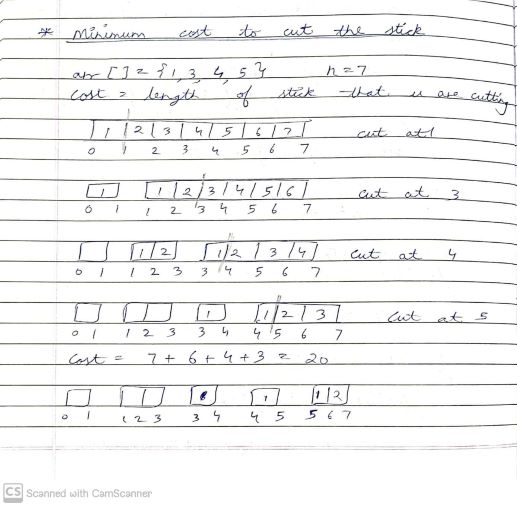 * Minimum cost to cut the stick
arr [ ] = { 1, 3, 4, 5 } n = 7
Cost = length of stick that u are cutting
1 | 2 | 3 | 4 | 5 | 6 | 7 cut at 1
0 1 2 3 4 5 6 7
1 1 | 2 | 3 | 4 | 5 | 6 | cut at 3
0 1 1 2 3 4 5 6 7
1 | 2 1 | 2 | 3 | 4 cut at 4
0 1 1 2 3 3 4 5 6 7
1 1 | 2 | 3 Cut at 5
0 1 1 2 3 3 4 4 5 6 7
Cost = 7 + 6 + 4 + 3 = 20
1 1 | 2
0 1 1 2 3 3 4 4 5 5 6 7
CS Scanned with CamScanner